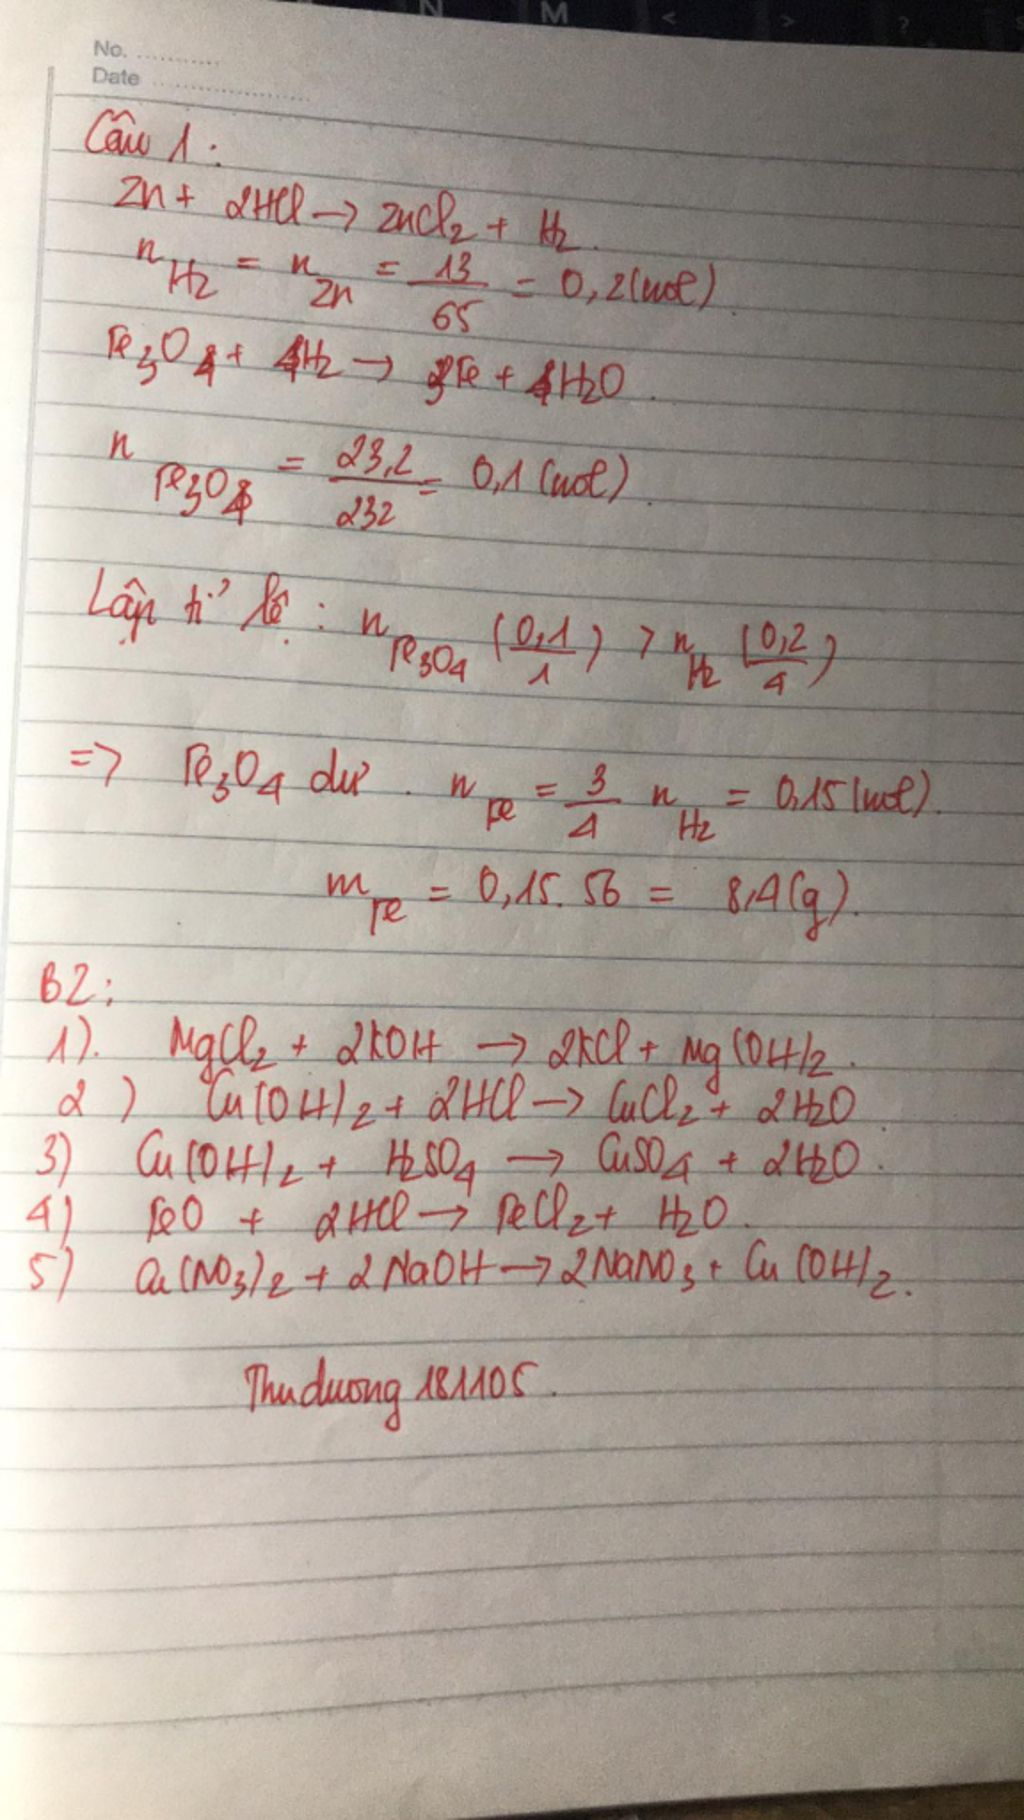 N M < > ?
No. ............
Date ......................
Câu 1 :
Zn + 2HCl → ZnCl₂ + H₂.
n H₂ = n Zn = 13/65 = 0,2 (mol)
Fe₃O₄ + 4H₂ → 3Fe + 4H₂O.
n Fe₃O₄ = 23,2/232 = 0,1 (mol).
Lập tỉ lệ : n Fe₃O₄ (0,1/1) > n H₂ (0,2/4)
=> Fe₃O₄ dư . n Fe = 3/4 n H₂ = 0,15 (mol).
m Fe = 0,15. 56 = 8,4 (g).
B2:
1). MgCl₂ + 2KOH → 2KCl + Mg(OH)₂.
2) Cu(OH)₂ + 2HCl → CuCl₂ + 2H₂O.
3) Cu(OH)₂ + H₂SO₄ → CuSO₄ + 2H₂O.
4) FeO + 2HCl → FeCl₂ + H₂O.
5) Cu(NO₃)₂ + 2NaOH → 2NaNO₃ + Cu(OH)₂.
Thuduong 181105.